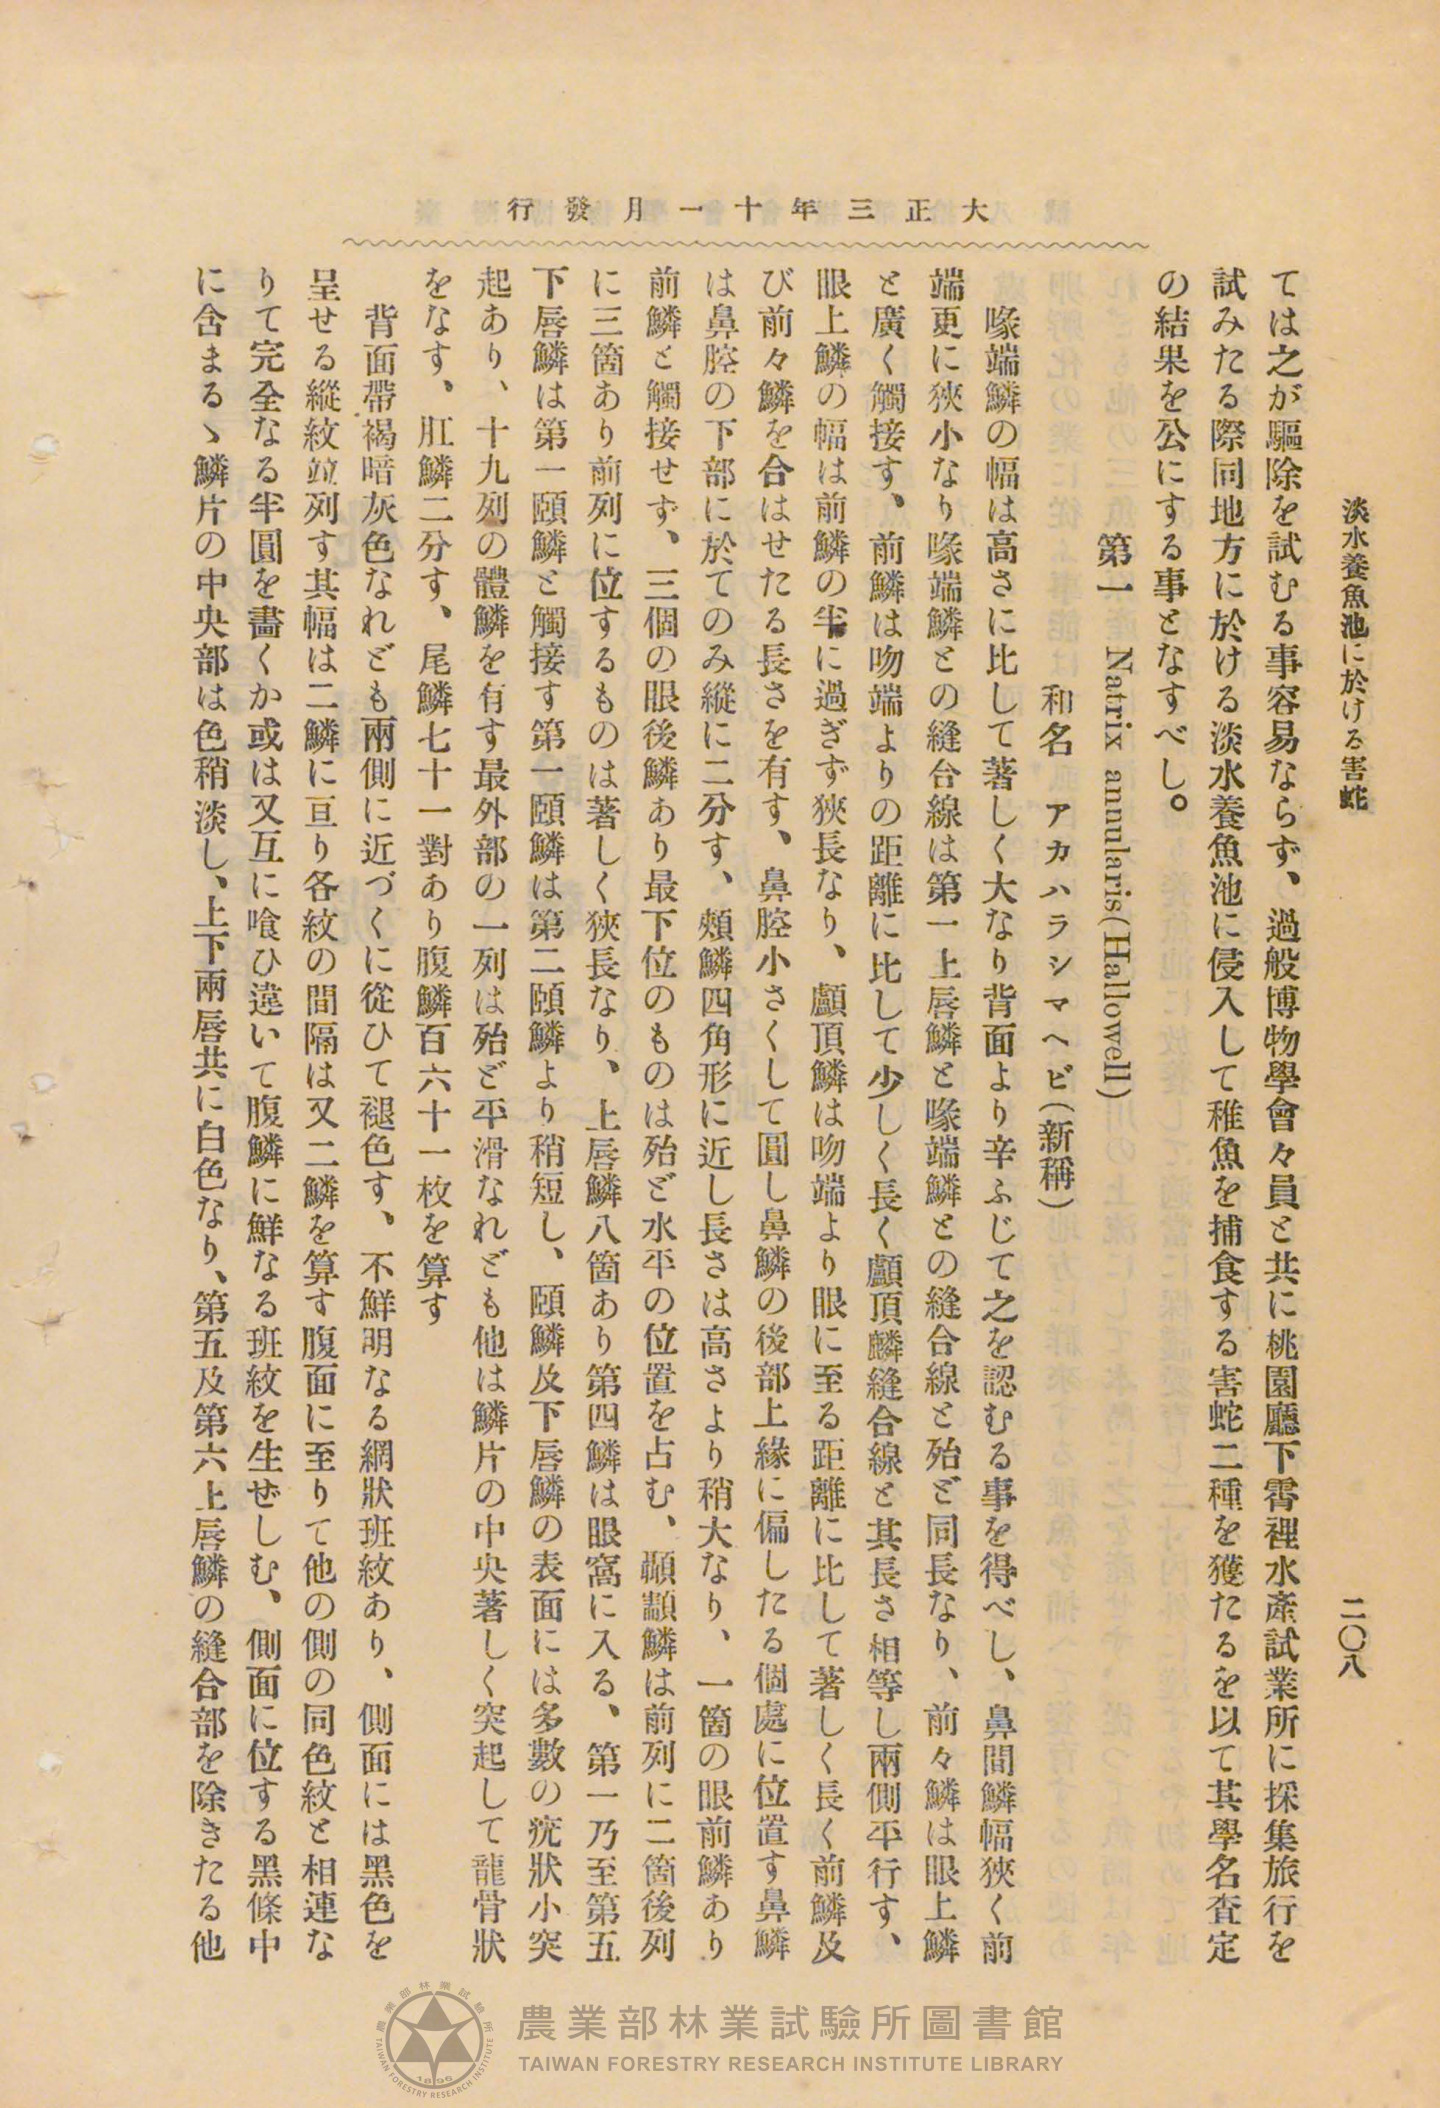 淡水養魚池に於ける害蛇
二〇八
行發月一十年三正大
ては之が驅除を試むる事容易ならず、過般博物學會々員と共に桃園廳下霄裡水產試業所に採集旅行を
試みたる際同地方に於ける淡水養魚池に侵入して稚魚を捕食する害蛇二種を獲たるを以て其學名査定
の結果を公にする事となすべし。
第一　Natrix annularis(Hallowell)
和名　アカハラシマヘビ（新稱）
喙端鱗の幅は高さに比して著しく大なり背面より辛ふじて之を認むる事を得べし、鼻間鱗幅狹く前
端更に狹小なり喙端鱗との縫合線は第一上唇鱗と喙端鱗との縫合線と殆ど同長なり、前々鱗は眼上鱗
と廣く觸接す、前鱗は吻端よりの距離に比して少しく長く顱頂鱗縫合線と其長さ相等し兩側平行す、
眼上鱗の幅は前鱗の半に過ぎず狹長なり、顱頂鱗は吻端より眼に至る距離に比して著しく長く前鱗及
び前々鱗を合はせたる長さを有す、鼻腔小さくして圓し鼻鱗の後部上緣に偏したる個處に位置す鼻鱗
は鼻腔の下部に於てのみ縱に二分す、頰鱗四角形に近し長さは高さより稍大なり、一箇の眼前鱗あり
前鱗と觸接せず、三個の眼後鱗あり最下位のものは殆ど水平の位置を占む、顳顬鱗は前列に二箇後列
に三箇あり前列に位するものは著しく狹長なり、上唇鱗八箇あり第四鱗は眼窩に入る、第一乃至第五
下唇鱗は第一頤鱗と觸接す第一頤鱗は第二頤鱗より稍短し、頤鱗及下唇鱗の表面には多數の疣狀小突
起あり、十九列の體鱗を有す最外部の一列は殆ど平滑なれども他は鱗片の中央著しく突起して龍骨狀
をなす、肛鱗二分す、尾鱗七十一對あり腹鱗百六十一枚を算す
背面帶褐暗灰色なれども兩側に近づくに從ひて褪色す、不鮮明なる網狀班紋あり、側面には黑色を
呈せる縱紋竝列す其幅は二鱗に亘り各紋の間隔は又二鱗を算す腹面に至りて他の側の同色紋と相連な
りて完全なる半圓を畫くか或は又互に喰ひ違いて腹鱗に鮮なる班紋を生ぜしむ、側面に位する黑條中
に含まるゝ鱗片の中央部は色稍淡し、上下兩唇共に白色なり、第五及第六上唇鱗の縫合部を除きたる他
農業部林業試驗所圖書館
TAIWAN FORESTRY RESEARCH INSTITUTE LIBRARY
農業部林業試驗所
TAIWAN FORESTRY RESEARCH INSTITUTE
1896